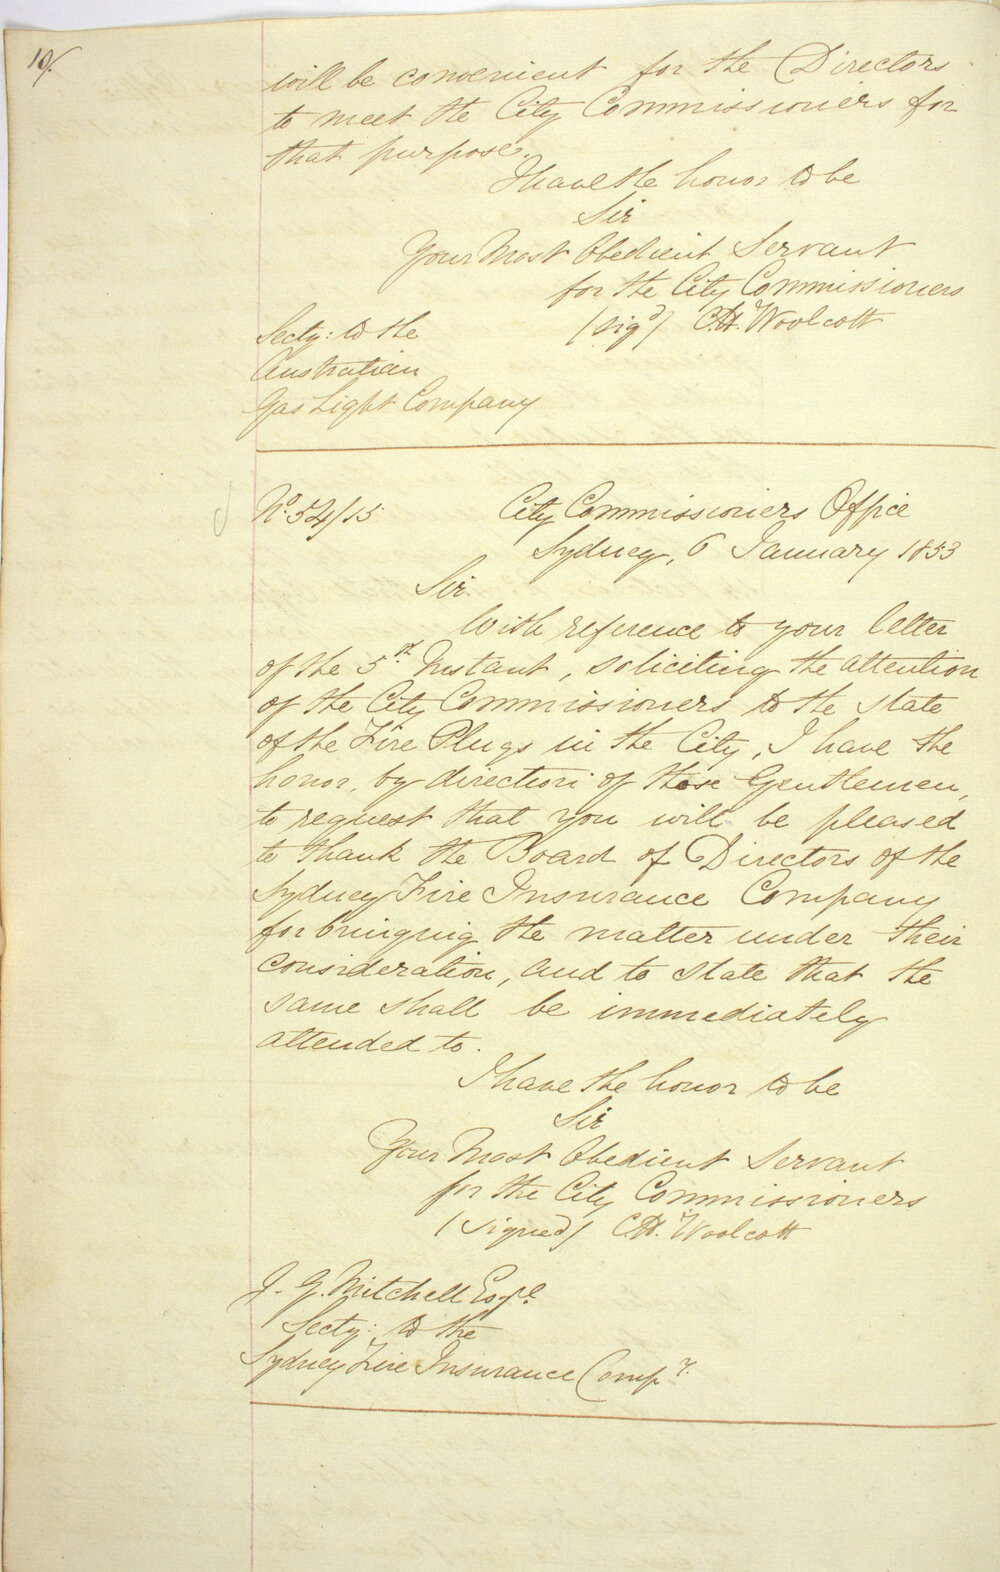 10/.
will be convenient for the Directors
to meet the City Commissioners for
that purpose.
I have the honor to be
Sir
Your Most Obedient Servant
for the City Commissioners
(sigd) C.H. Woolcott
Secty: to the
Australian
Gas Light Company
No. 54/15
City Commissioners Office
Sydney, 6 January 1853
Sir
With reference to your letter
of the 5th Instant, soliciting the attention
of the City Commissioners to the state
of the Fire Plugs in the City, I have the
honor, by direction of those Gentlemen,
to request that you will be pleased
to thank the Board of Directors of the
Sydney Fire Insurance Company
for bringing the matter under their
consideration, and to state that the
same shall be immediately
attended to.
I have the honor to be
Sir
Your Most Obedient Servant
for the City Commissioners
(signed) C.H. Woolcott
J. G. Mitchell Esqre.
Secty: to the
Sydney Fire Insurance Compy.